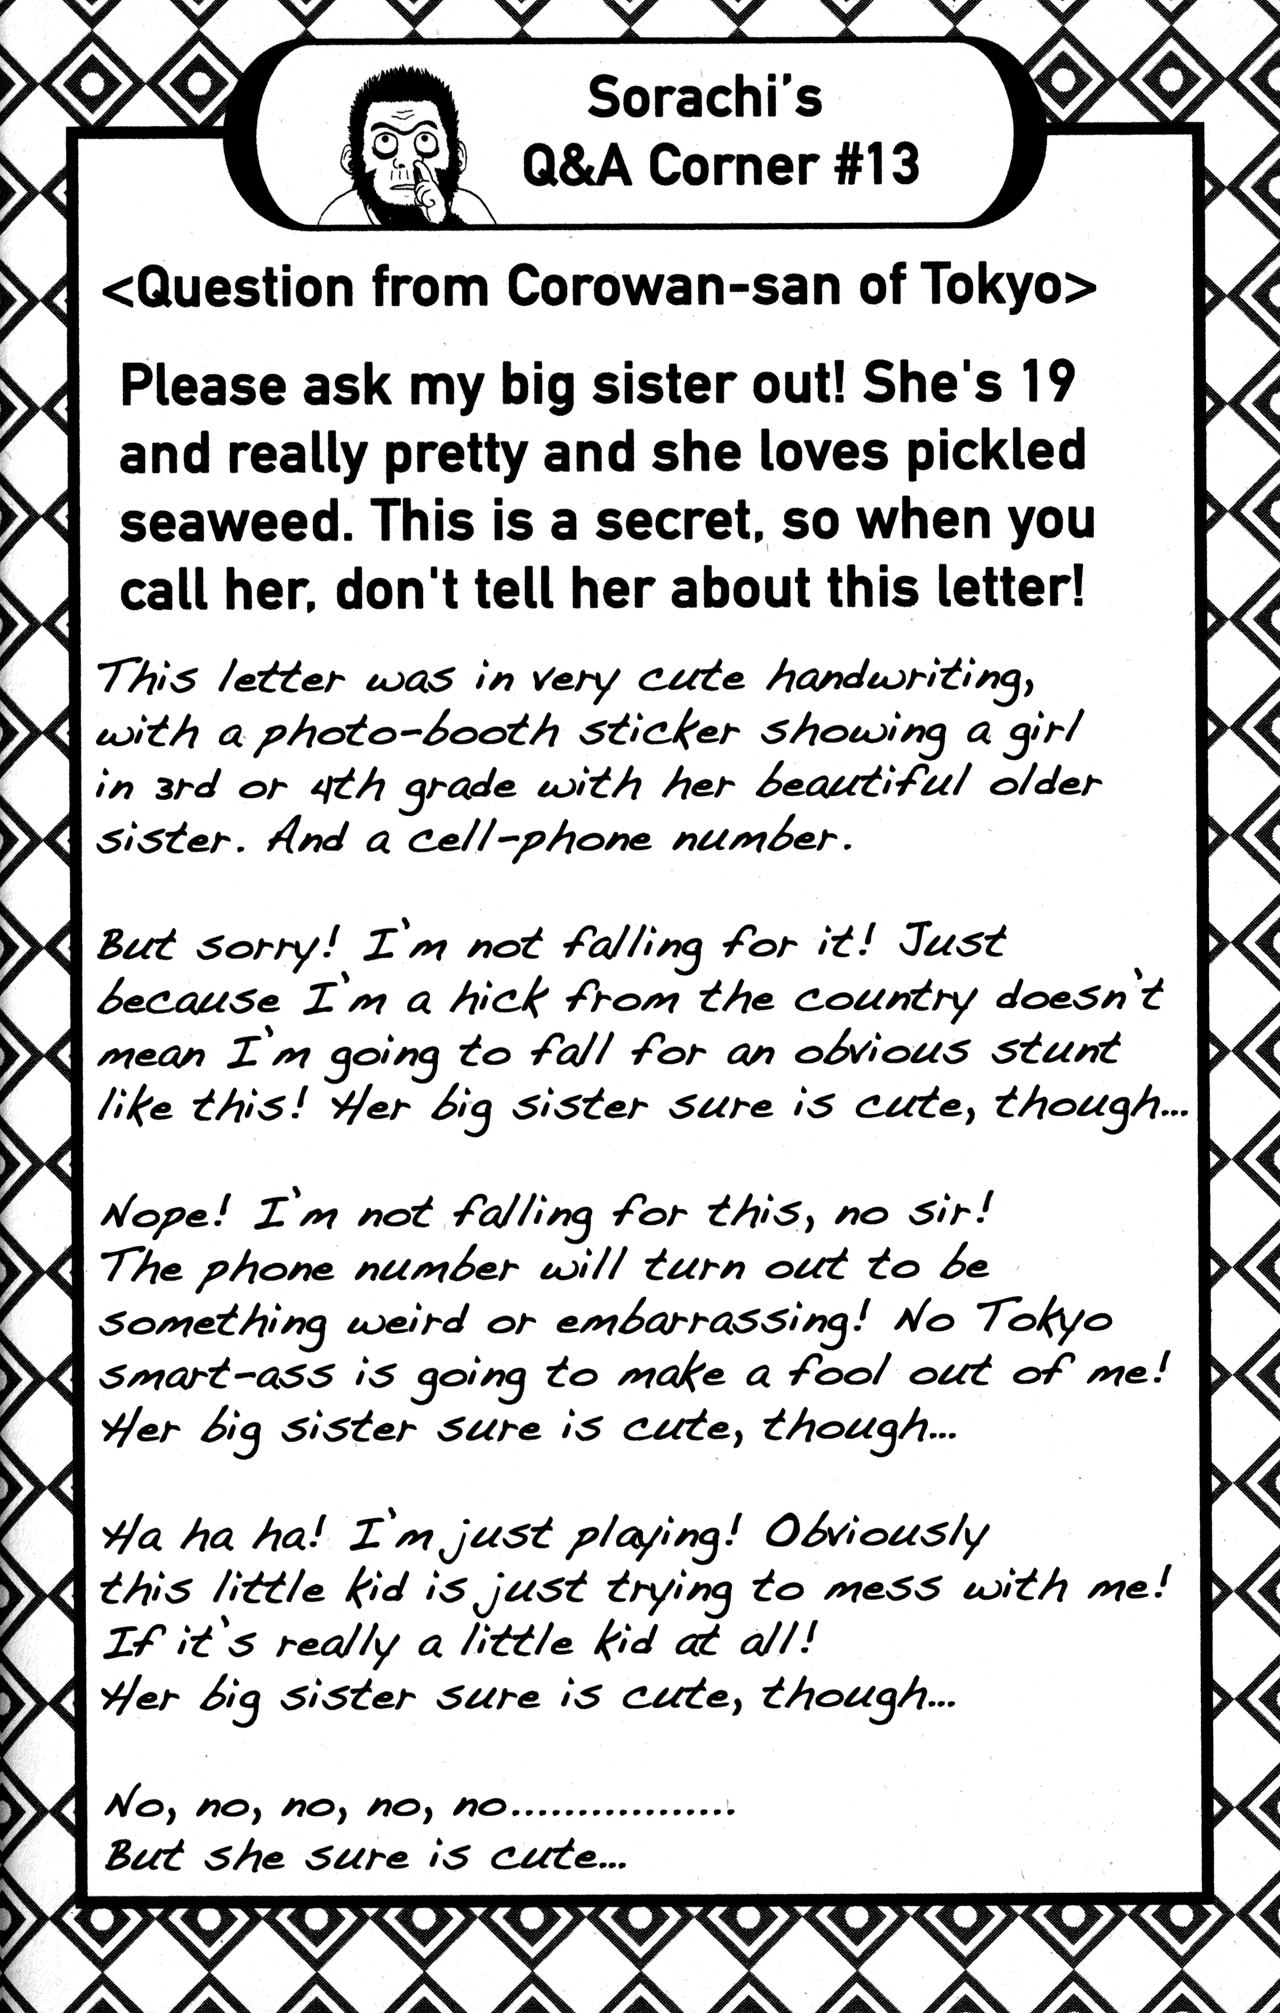 Sorachi's
Q&A Corner #13
<Question from Corowan-san of Tokyo>
Please ask my big sister out! She's 19
and really pretty and she loves pickled
seaweed. This is a secret, so when you
call her, don't tell her about this letter!
This letter was in very cute handwriting,
with a photo-booth sticker showing a girl
in 3rd or 4th grade with her beautiful older
sister. And a cell-phone number.
But sorry! I'm not falling for it! Just
because I'm a hick from the country doesn't
mean I'm going to fall for an obvious stunt
like this! Her big sister sure is cute, though...
Nope! I'm not falling for this, no sir!
The phone number will turn out to be
something weird or embarrassing! No Tokyo
smart-ass is going to make a fool out of me!
Her big sister sure is cute, though...
Ha ha ha! I'm just playing! Obviously
this little kid is just trying to mess with me!
If it's really a little kid at all!
Her big sister sure is cute, though...
No, no, no, no, no.................
But she sure is cute...